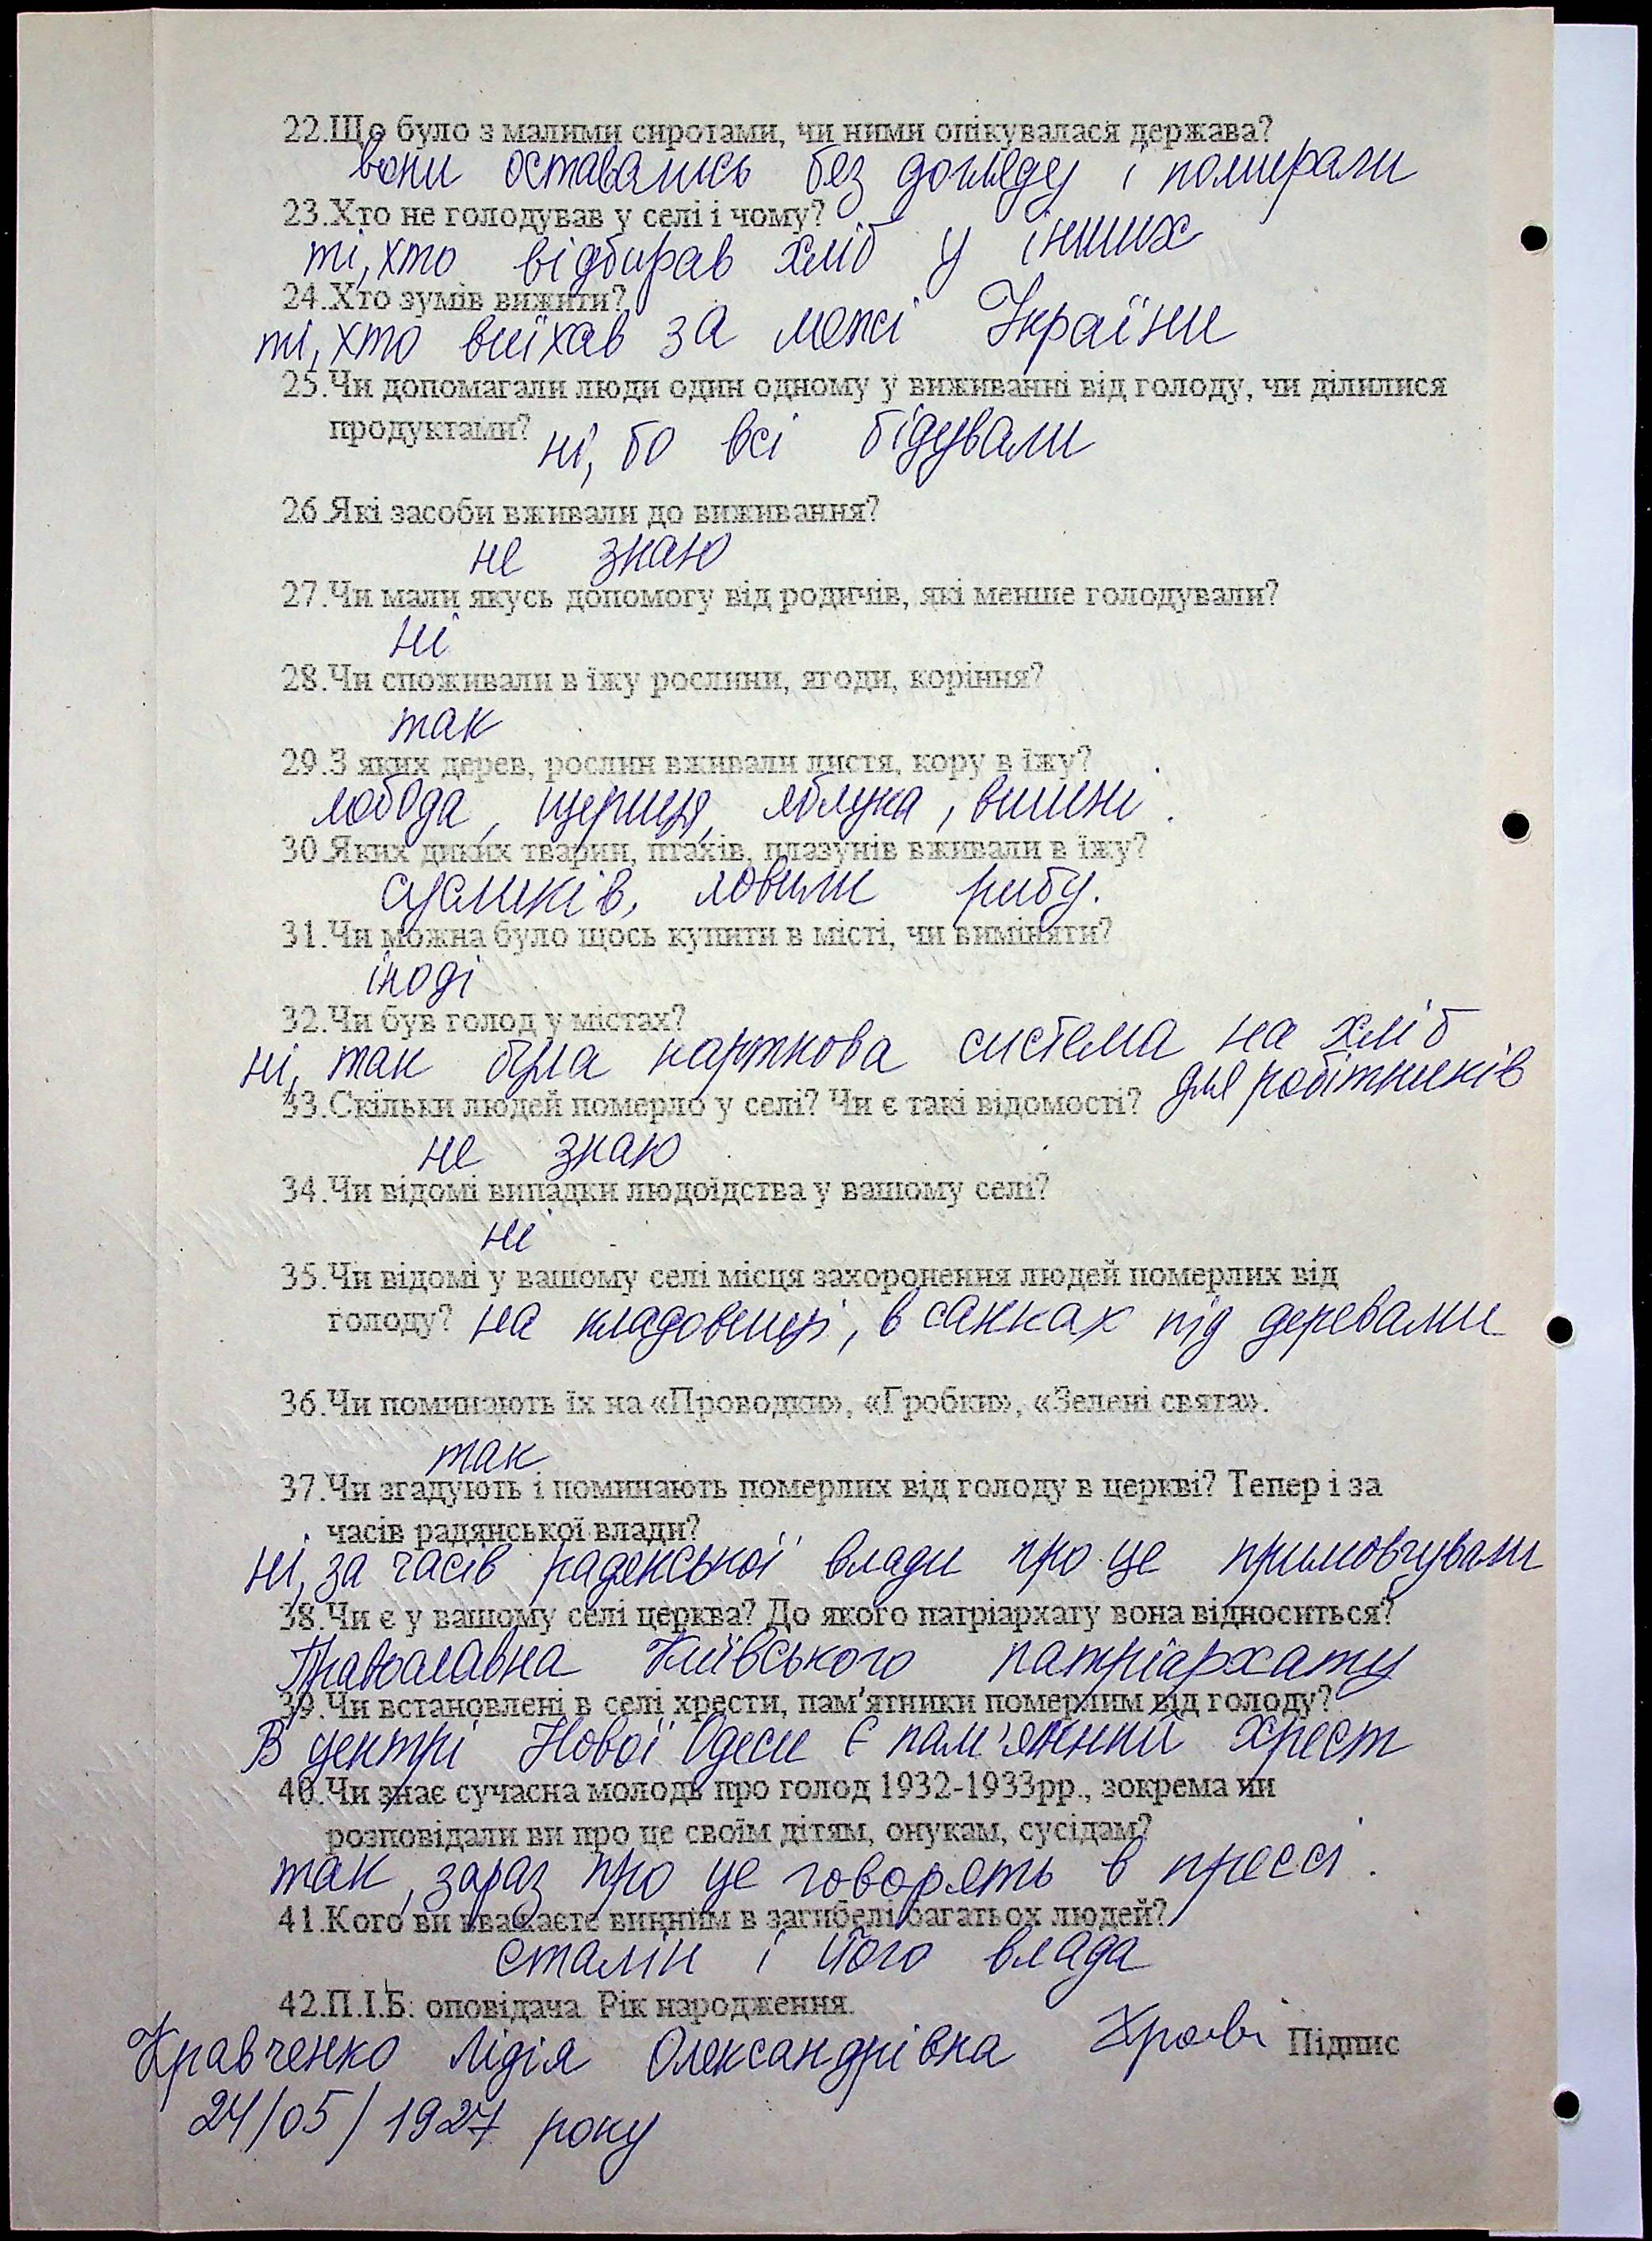 22.Що було з малими сиротами, чи ними опікувалася держава?
вони оставались без догляду і помирали
23.Хто не голодував у селі і чому?
ті, хто відбирав хліб у інших
24.Хто зумів вижити?
ті, хто виїхав за межі України
25.Чи допомагали люди один одному у виживанні від голоду, чи ділилися
продуктами? ні, бо всі бідували
26.Які засоби вживали до виживання?
не знаю
27.Чи мали якусь допомогу від родичів, які менше голодували?
ні
28.Чи споживали в їжу рослини, ягоди, коріння?
так
29.З яких дерев, рослин вживали листя, кору в їжу?
лобода, щериця, яблука, вишні.
30.Яких диких тварин, птахів, плазунів вживали в їжу?
сусликів, ловили рибу.
31.Чи можна було щось купити в місті, чи виміняти?
іноді
32.Чи був голод у містах?
ні, так була карткова система на хліб
для робітників
33.Скільки людей померло у селі? Чи є такі відомості?
не знаю
34.Чи відомі випадки людоїдства у вашому селі?
ні
35.Чи відомі у вашому селі місця захоронення людей померлих від
голоду? на кладовищі, в под деревами
36.Чи поминають їх на «Проводки», «Гробки», «Зелені свята».
так
37.Чи згадують і поминають померлих від голоду в церкві? Тепер і за
часів радянської влади?
ні, за часів радянської влади про це примовчували
38.Чи є у вашому селі церква? До якого патріархату вона відноситься?
Православна Київського патріархату
39.Чи встановлені в селі хрести, пам'ятники померлим від голоду?
В центрі Нової Одеси є пам'ятний хрест
40.Чи знає сучасна молодь про голод 1932-1933рр., зокрема чи
розповідали ви про це своїм дітям, онукам, сусідам?
так, зараз про це говорять в прессі.
41.Кого ви вважаєте винним в загибелі багатьох людей?
сталін і його влада
42.П.І.Б. оповідача. Рік народження.
Кравченко Лідія Олександрівна Підпис
24/05/1927 року